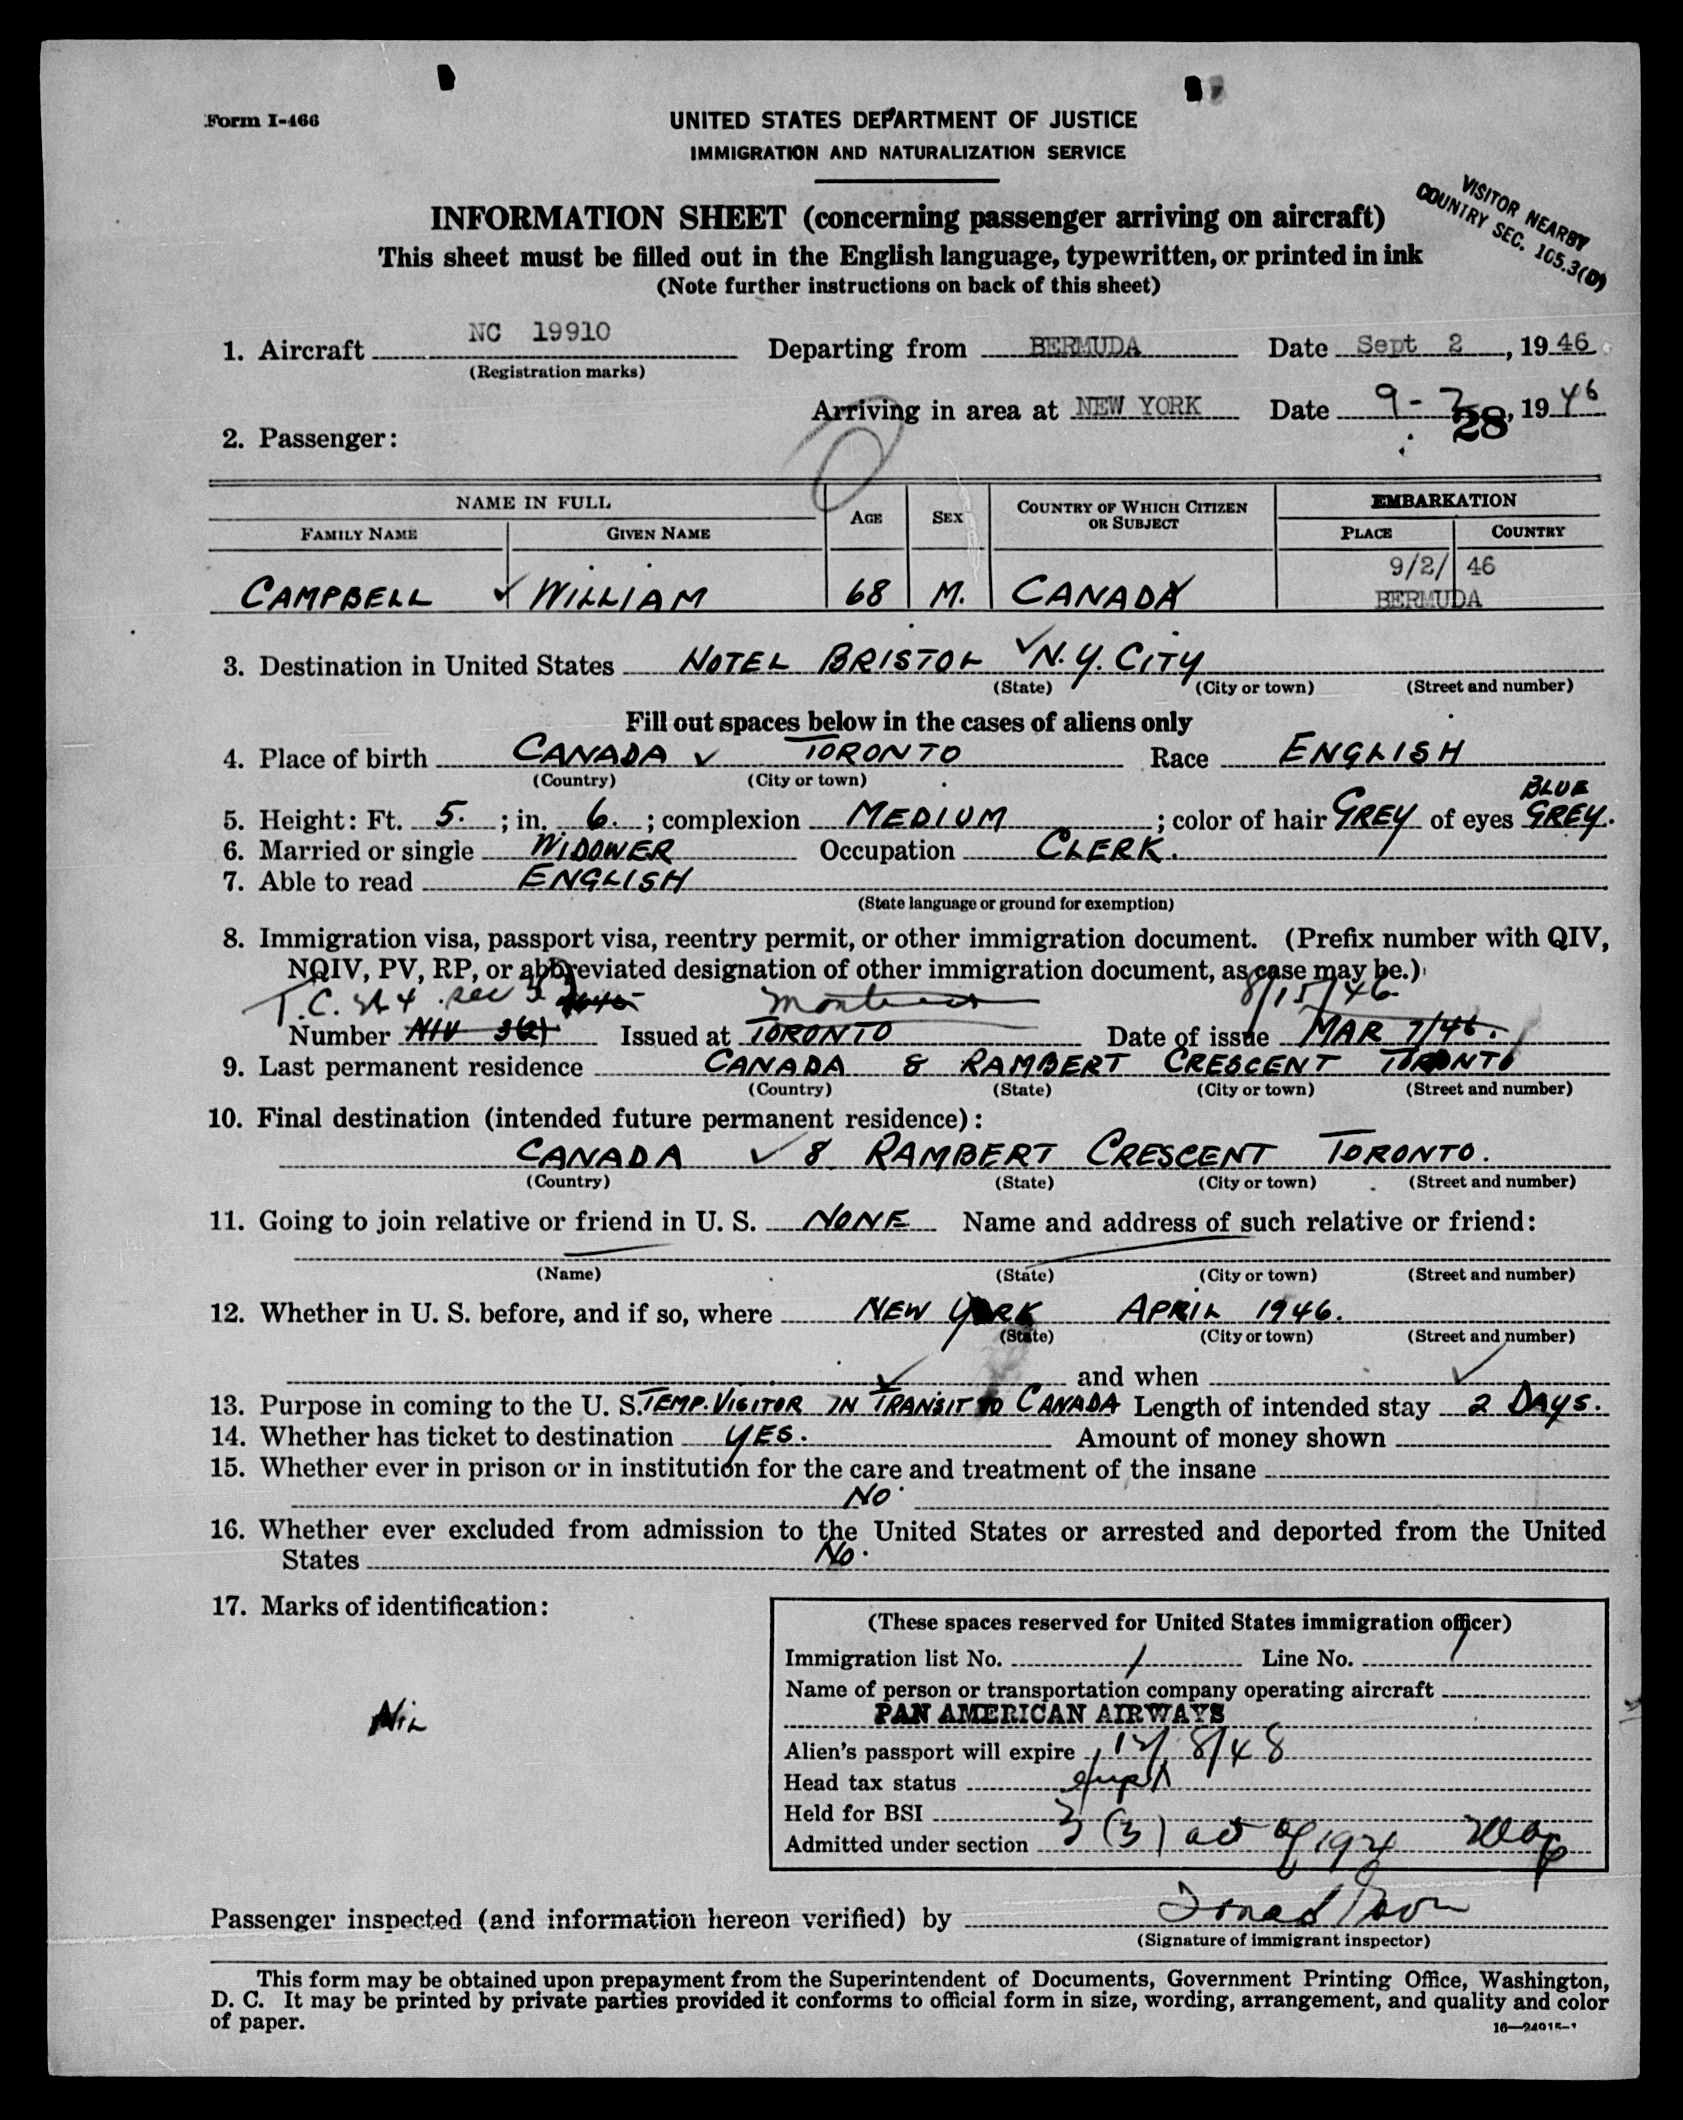 Form I-466
UNITED STATES DEPARTMENT OF JUSTICE
IMMIGRATION AND NATURALIZATION SERVICE
VISITOR NEARBY
COUNTRY SEC. 105.3(D)
INFORMATION SHEET (concerning passenger arriving on aircraft)
This sheet must be filled out in the English language, typewritten, or printed in ink
(Note further instructions on back of this sheet)
1. Aircraft NC 19910 Departing from BERMUDA Date Sept 2, 1946
(Registration marks)
Arriving in area at NEW YORK Date 9-2, 1946
28
2. Passenger:
NAME IN FULL AGE SEX COUNTRY OF WHICH CITIZEN OR SUBJECT EMBARKATION
FAMILY NAME GIVEN NAME PLACE COUNTRY
9/2/ 46
CAMPBELL WILLIAM 68 M. CANADA BERMUDA
3. Destination in United States HOTEL BRISTOL N.Y. CITY
(State) (City or town) (Street and number)
Fill out spaces below in the cases of aliens only
4. Place of birth CANADA TORONTO Race ENGLISH
(Country) (City or town)
BLUE
5. Height: Ft. 5. ; in. 6. ; complexion MEDIUM ; color of hair GREY of eyes GREY.
6. Married or single WIDOWER Occupation CLERK.
7. Able to read ENGLISH
(State language or ground for exemption)
8. Immigration visa, passport visa, reentry permit, or other immigration document. (Prefix number with QIV,
NQIV, PV, RP, or abbreviated designation of other immigration document, as case may be.)
T.C. sec 3 Montreal 8/15/46
Number NIV 3(2) Issued at TORONTO Date of issue MAR 7/46.
9. Last permanent residence CANADA 8 RAMBERT CRESCENT TORONTO
(Country) (State) (City or town) (Street and number)
10. Final destination (intended future permanent residence):
CANADA 8 RAMBERT CRESCENT TORONTO.
(Country) (State) (City or town) (Street and number)
11. Going to join relative or friend in U. S. NONE Name and address of such relative or friend:
(Name) (State) (City or town) (Street and number)
12. Whether in U. S. before, and if so, where NEW YORK APRIL 1946.
(State) (City or town) (Street and number)
and when
13. Purpose in coming to the U. S. TEMP. VISITOR IN TRANSIT TO CANADA Length of intended stay 2 DAYS.
14. Whether has ticket to destination YES. Amount of money shown
15. Whether ever in prison or in institution for the care and treatment of the insane
NO.
16. Whether ever excluded from admission to the United States or arrested and deported from the United
States NO.
17. Marks of identification:
NIL
(These spaces reserved for United States immigration officer)
Immigration list No. 1 Line No. 1
Name of person or transportation company operating aircraft
PAN AMERICAN AIRWAYS
Alien's passport will expire 12/8/48
Head tax status
Held for BSI
Admitted under section 3 (3) act of 1924
Passenger inspected (and information hereon verified) by
(Signature of immigrant inspector)
This form may be obtained upon prepayment from the Superintendent of Documents, Government Printing Office, Washington,
D. C. It may be printed by private parties provided it conforms to official form in size, wording, arrangement, and quality and color
of paper.
16—24915-1